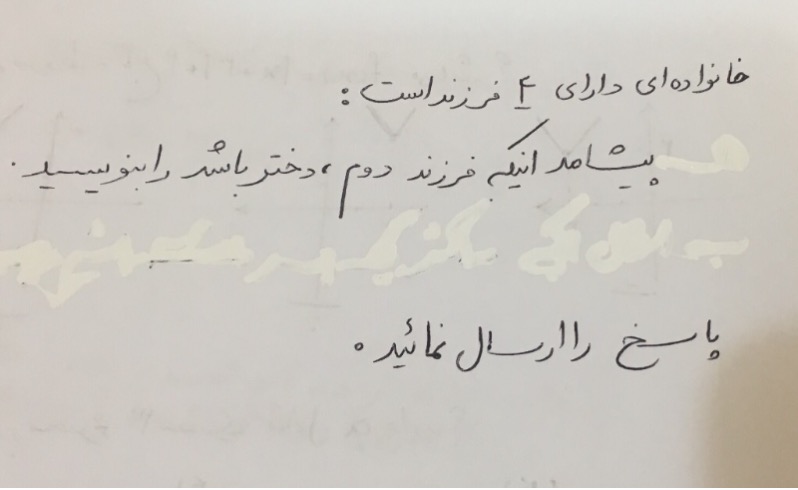 خانواده‌ای دارای ۴ فرزند است :
پیشامد اینکه فرزند دوم ، دختر باشد را بنویسید .
پاسخ را ارسال نمائید .